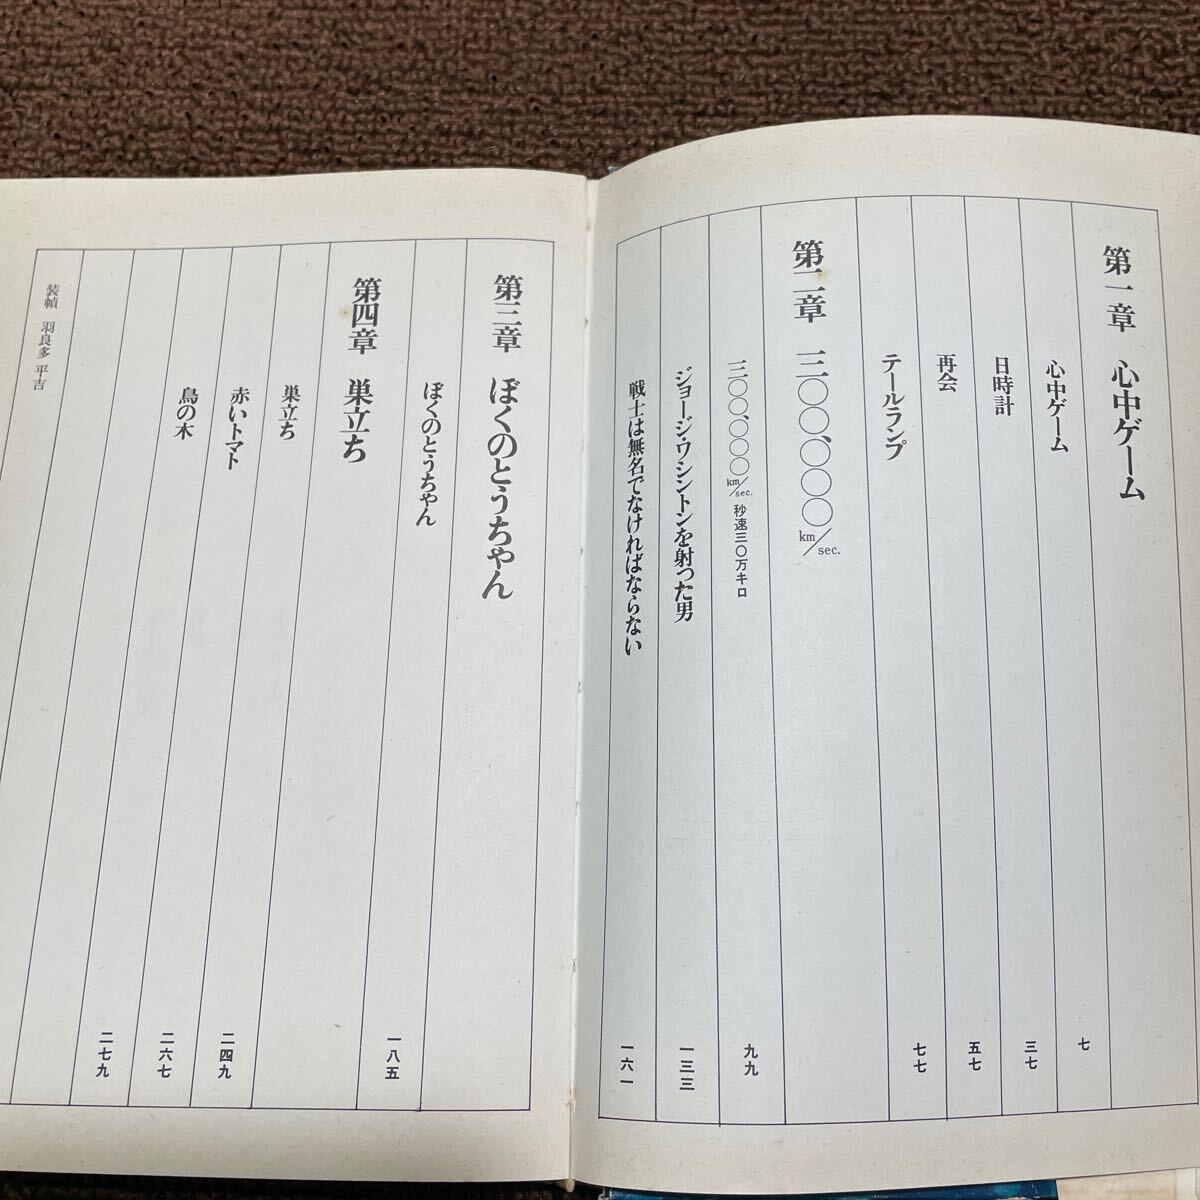 第一章 心中ゲーム
心中ゲーム 七
日時計 三七
再会 五七
テールランプ 七七
第二章 三〇〇、〇〇〇km/sec.
三〇〇、〇〇〇km/sec. 秒速三〇万キロ 九九
ジョージ・ワシントンを射った男 一三三
戦士は無名でなければならない 一六一
第三章 ぼくのとうちゃん
ぼくのとうちゃん 一八五
第四章 巣立ち
巣立ち 二四九
赤いトマト 二六七
鳥の木 二七九
装幀 羽良多平吉